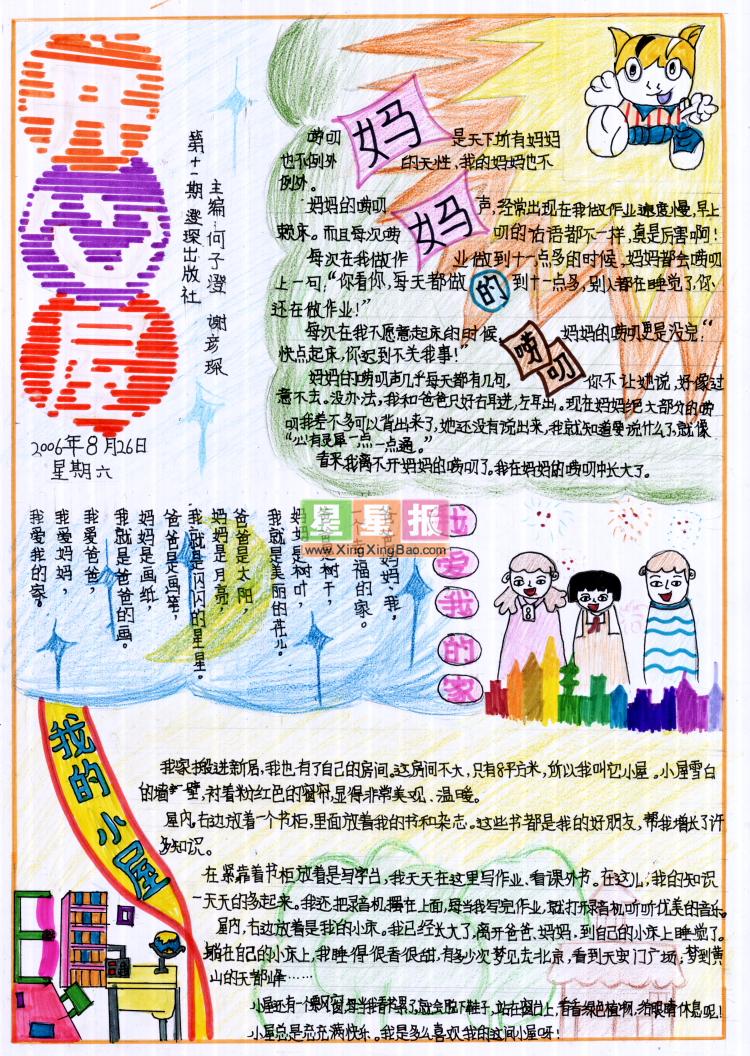 开心屋
第十一期 澄琛出版社
主编：何子澄 谢彦琛
2006年8月26日
星期六
妈妈的唠叨
唠叨是天下所有妈妈
的天性，我的妈妈也不
例外。
妈妈的唠叨声，经常出现在我做作业速度慢，早上
赖床。而且每次唠叨的话语都不一样，真是厉害啊！
每次在我做作业做到十一点多的时候，妈妈都会唠叨
上一句：“你看你，每天都做到十一点多，别人都在睡觉了，你
还在做作业！”
每次在我不愿意起床的时候，妈妈的唠叨更是没完：“
快点起床，你迟到不关我事！”
妈妈的唠叨声几乎每天都有几句，你不让她说，好像过
意不去。没办法，我和爸爸只好右耳进，左耳出。现在妈妈把大部分的唠
叨我差不多可以背出来了，她还没有说出来，我就知道要说什么了，就像
“心有灵犀一点一点通。”
看来我离不开妈妈的唠叨了。我在妈妈的唠叨中长大了。
我爱我的家
爸爸、妈妈、我，
一个幸福的家。
爸爸是树干，
妈妈是树叶，
我就是美丽的花儿。
爸爸是太阳，
妈妈是月亮，
我就是闪闪的星星。
爸爸是画笔，
妈妈是画纸，
我就是爸爸的画。
我爱爸爸，
我爱妈妈，
我爱我的家。
星星报
www.XingXingBao.com
我的小屋
我家搬进新居，我也有了自己的房间。这房间不大，只有8平方米，所以我叫它小屋。小屋雪白
的墙壁，衬着粉红色的窗帘，显得非常美观、温暖。
屋内，右边放着一个书柜，里面放着我的书和杂志。这些书都是我的好朋友，帮我增长了许
多知识。
在紧靠着书柜放着是写字台，我天天在这里写作业、看课外书。在这儿，我的知识
一天天的多起来。我还把录音机摆在上面，每当我写完作业，就打开录音机听听优美的音乐。
屋内，右边放着是我的小床。我已经长大了，离开爸爸、妈妈，到自己的小床上睡觉了。
躺在自己的小床上，我睡得很香很甜，有多少次梦见去北京，看到天安门广场；梦到黄
山的天都峰……
小屋还有一个飘窗，每当我看书累了，就会脱下鞋子，站在窗台上，看看绿色植物，给眼睛休息呢！
小屋总是充充满快乐。我是多么喜欢我的这间小屋呀！